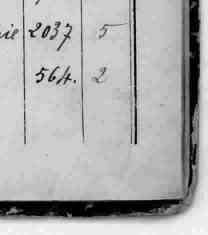 2037 5
564. 2